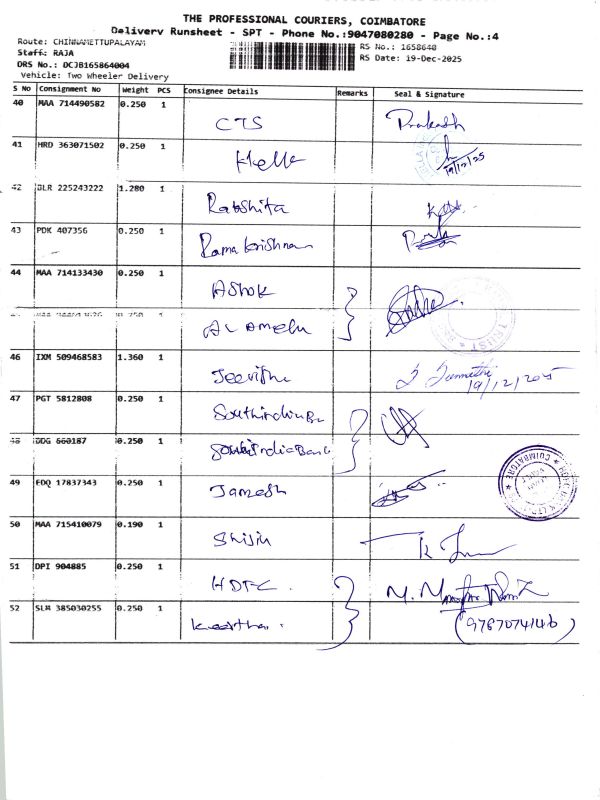 THE PROFESSIONAL COURIERS, COIMBATORE
Delivery Runsheet - SPT - Phone No.:9047080280 - Page No.:4
Route: CHINNAMETTUPALAYAM
RS No.: 1658640
Staff: RAJA
RS Date: 19-Dec-2025
DRS No.: DCJB165864004
Vehicle: Two Wheeler Delivery
S No Consignment No Weight PCS Consignee Details Remarks Seal & Signature
40 MAA 714490582 0.250 1
CTS Prakash
41 HRD 363071502 0.250 1
19/12/25
42 BLR 225243222 1.280 1
Rakshita
43 PDK 407356 0.250 1
Rama krishnan
44 MAA 714133430 0.250 1
Ashok
Alamelu
TRUST
46 IXM 509468583 1.360 1
19/12/2025
47 PGT 5812808 0.250 1
South indian Ba
48 DDG 660187 0.250 1
South India Bank
COIMBATORE
49 EDQ 17837343 0.250 1
Jamesh
50 MAA 715410079 0.190 1
51 DPI 904885 0.250 1
HDFC
52 SLM 385030255 0.250 1
(9787074146)